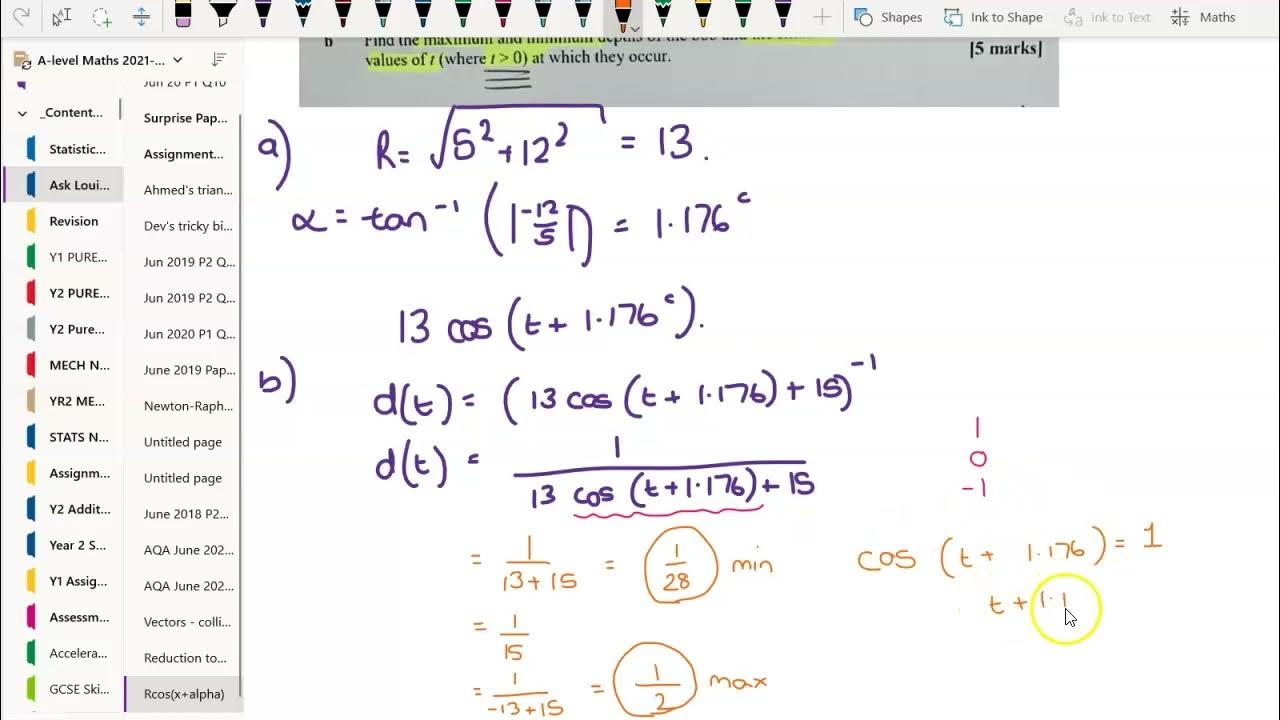 Shapes
Ink to Shape
Ink to Text
Maths
A-level Maths 2021-...
_Content...
Statistic...
Ask Loui...
Revision
Y1 PURE...
Y2 PURE...
Y2 Pure...
MECH N...
YR2 ME...
STATS N...
Assignm...
Y2 Addit...
Year 2 S...
Y1 Assig...
Assessm...
Accelera...
GCSE Ski...
Jun 20 P1 Q10
Surprise Pap...
Assignment...
Ahmed's trian...
Dev's tricky bi...
Jun 2019 P2 Q...
Jun 2019 P2 Q...
Jun 2020 P1 Q...
June 2019 Pap...
Newton-Raph...
Untitled page
Untitled page
June 2018 P2...
AQA June 202...
AQA June 202...
Vectors - colli...
Reduction to...
Rcos(x+alpha)
b Find the maximum and minimum depths of the bob and the
values of t (where t > 0) at which they occur.
[5 marks]
a) R= √5²+12² = 13.
α = tan⁻¹ (|-12/5|) = 1.176ᶜ
13 cos (t + 1.176ᶜ).
b) d(t) = (13 cos (t + 1.176) + 15)⁻¹
d(t) = 1/13 cos (t+1.176) + 15
= 1/13+15 = 1/28 min
= 1/15
= 1/-13+15 = 1/2 max
1
0
-1
cos (t + 1.176) = 1
t + 1.1